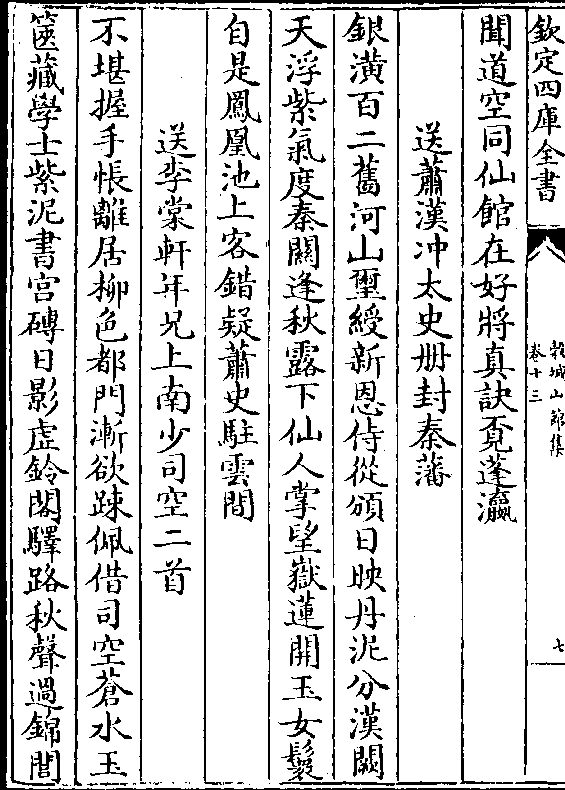 欽定四庫全書
穀城山館集
卷十三
七
聞道空同仙館在好將真訣覔蓬瀛
送蕭漢冲太史册封秦藩
銀潢百二舊河山璽綬新恩侍從頒日映丹泥分漢闕
天浮紫氣度秦關逢秋露下仙人掌望嶽蓮開玉女鬟
自是鳳凰池上客錯疑蕭史駐雲間
送李棠軒年兄上南少司空二首
不堪握手悵離居柳色都門漸欲踈佩借司空蒼水玉
篋藏學士紫泥書宫磚日影虚鈴閣驛路秋聲過錦閭